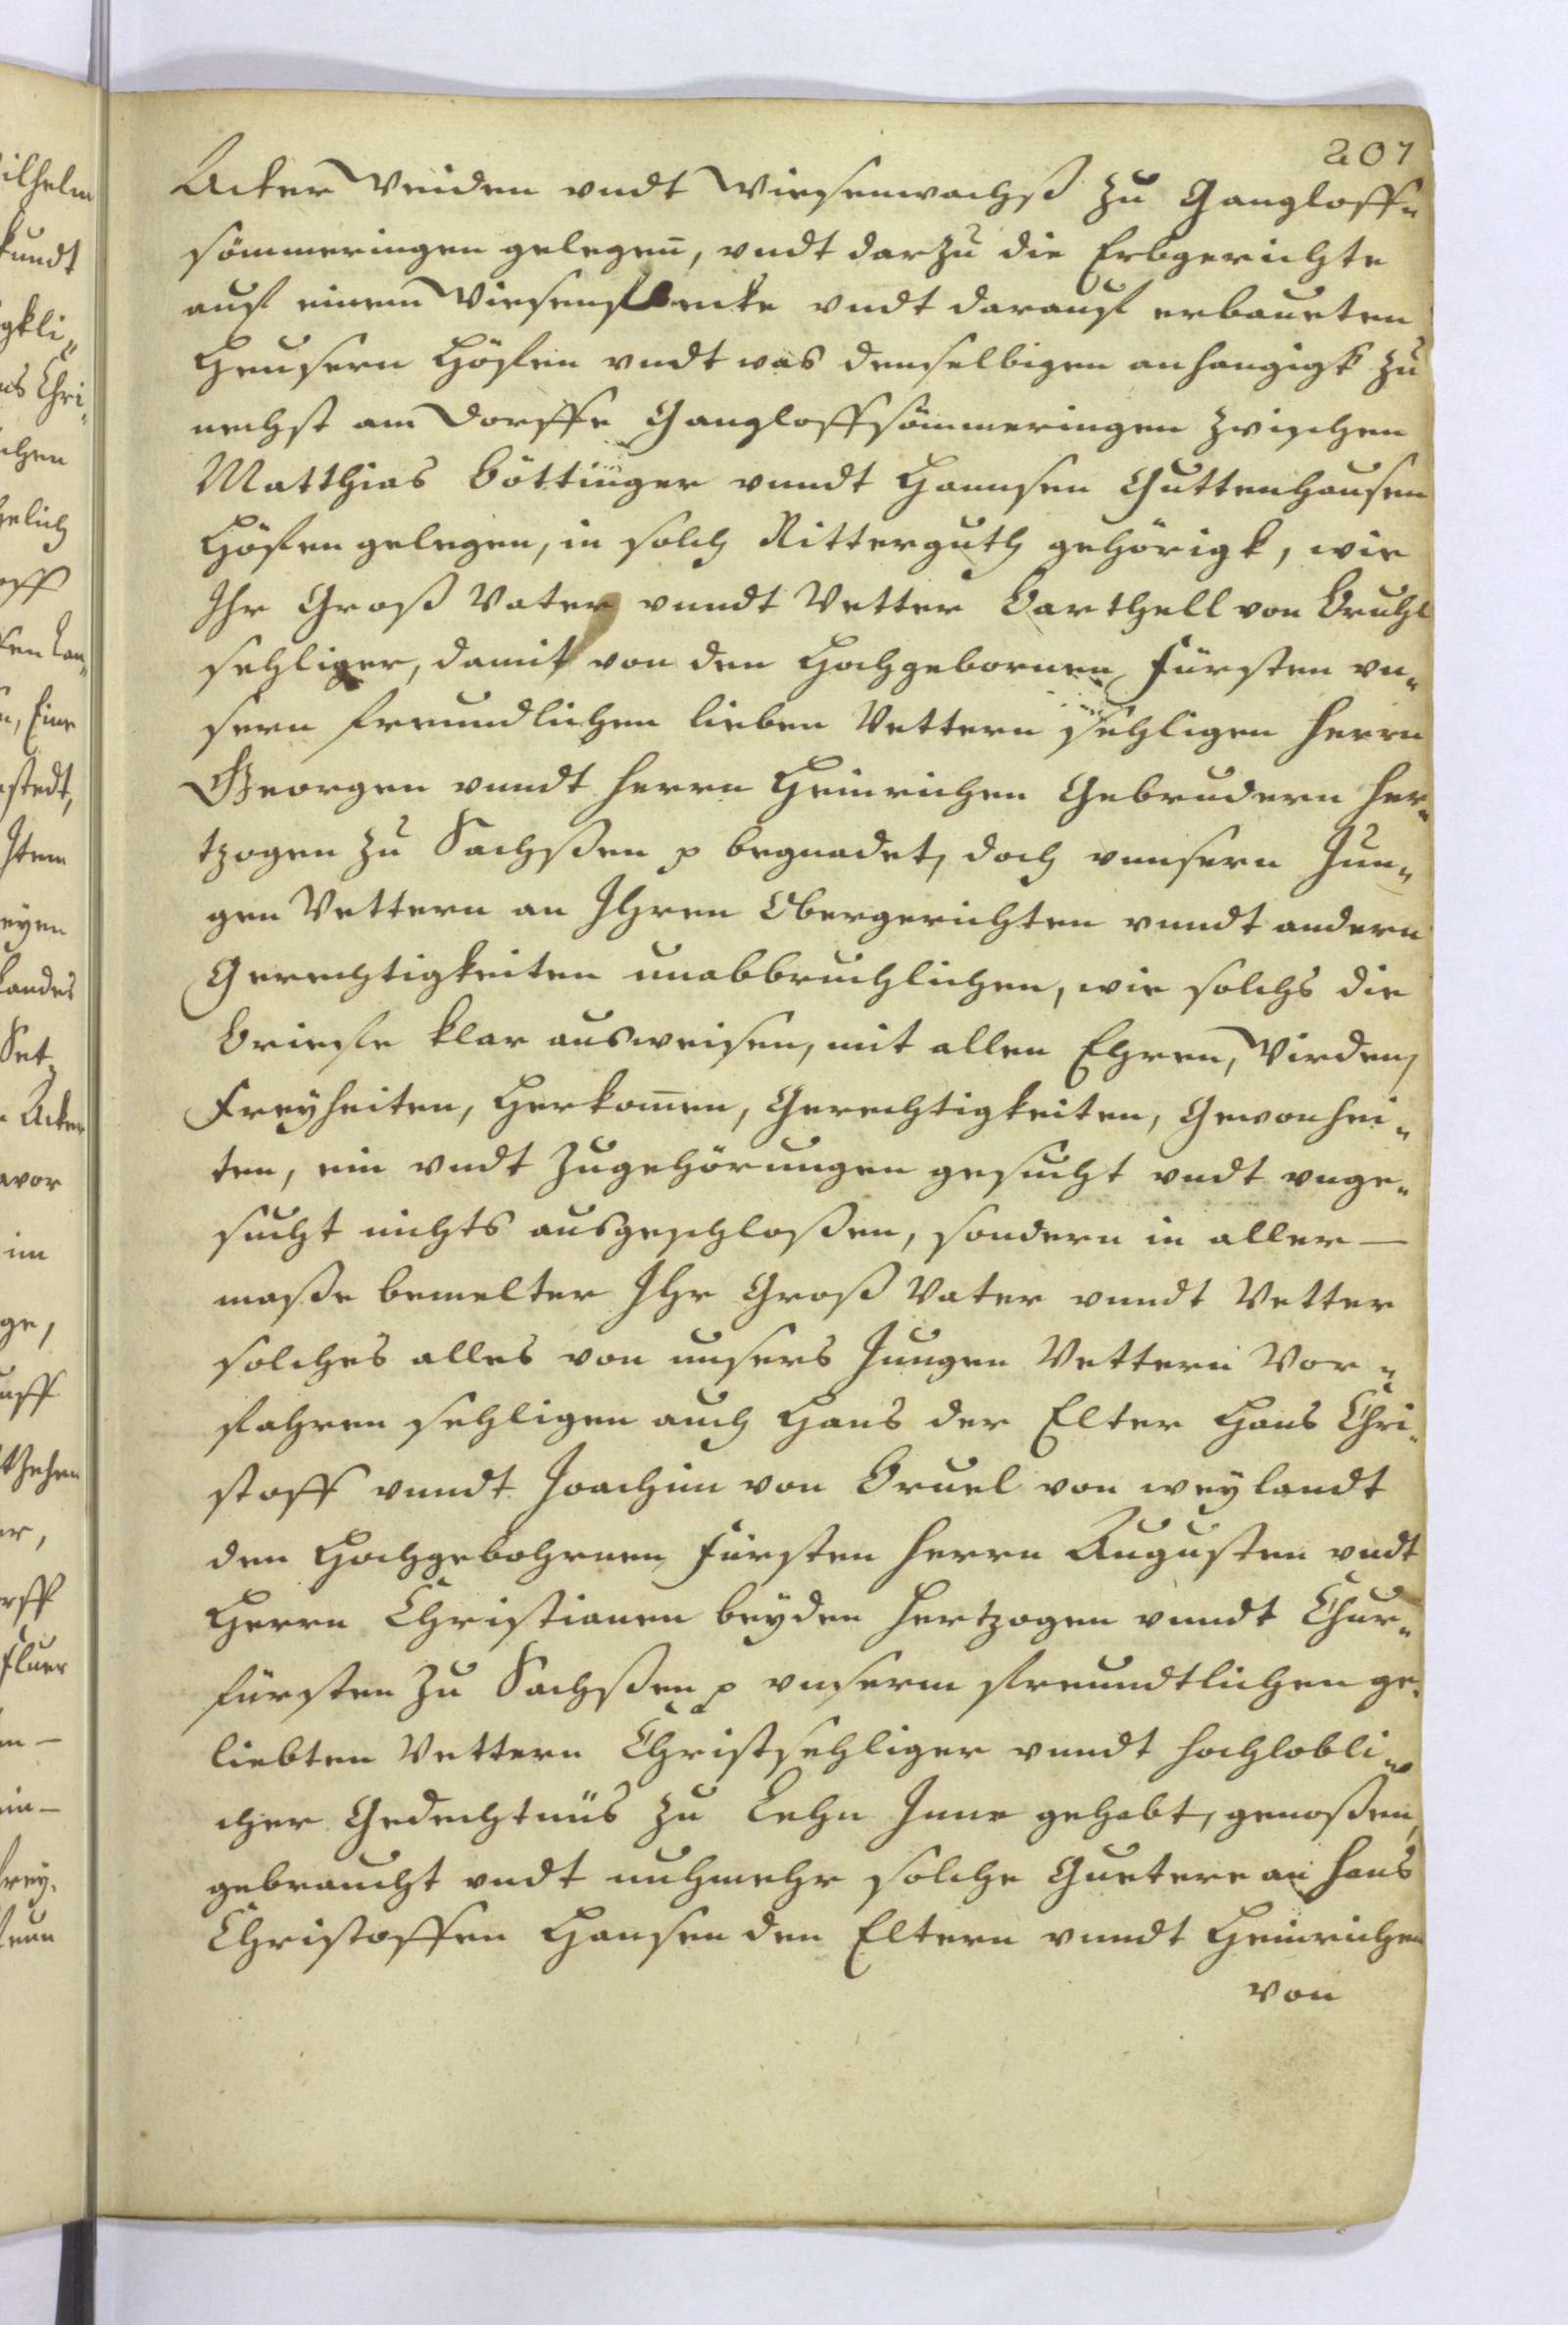 207
Acker Weiden vndt Wiesenwachß zu Gangloff„
sömmeringen gelegenn, vndt darzu die Erbgerichte
auf einem Wiesenflecke vndt darauf erbaueten
Heusern Höfen vndt was demselbigen anhangigk zu
nechst am Dorffe Gangloffsömmeringen zwischen
Matthias Böttinger vnndt Hannsen Guttenhausen
Höfen gelegen, in solch Ritterguth gehörigk, wie
Ihr Groß Vater vnndt Vetter Barthell von Bruhl
sehliger, damit von den Hochgebornen Fürsten vn„
sern freundlichen lieben Vettern sehligen Herrn
Georgen vnndt Herrn Heinrichen Gebrudern Her„
tzogen zu Sachßen p begnadet, doch vnnsern Jun„
gen Vettern an Ihren Obergerichten vnndt andern
Gerechtigkeiten unabbruchlichen, wie solchs die
Briefe klar ausweisen, mit allen Ehren, Wirden,
Freyheiten, Herkommen, Gerechtigkeiten, Gewonhei„
ten, ein vndt Zugehörungen gesucht vndt vnge„
sucht nichts ausgeschloßen, sondern in aller—
maße bemelter Ihr Groß Vater vnndt Vetter
solches alles von unsers Jungen Vettern Vor„
fahren sehligen auch Hans der Elter Hans Chri„
stoff vnndt Joachim von Bruel von weylandt
den Hochgebohrnen Fürsten Herrn Augusten vndt
Herrn Christianen beyden Hertzogen vnndt Chur„
fürsten zu Sachßen p vnserm freundtlichen ge„
liebten Vettern Christsehliger vnndt hochlobli„
cher Gedechtnüs zu Lehn Inne gehabt, genoßen,
gebraucht vndt nuhmehr solche Guetere an Hans
Christoffen Hansen den Eltern vnndt Heinrichen
von